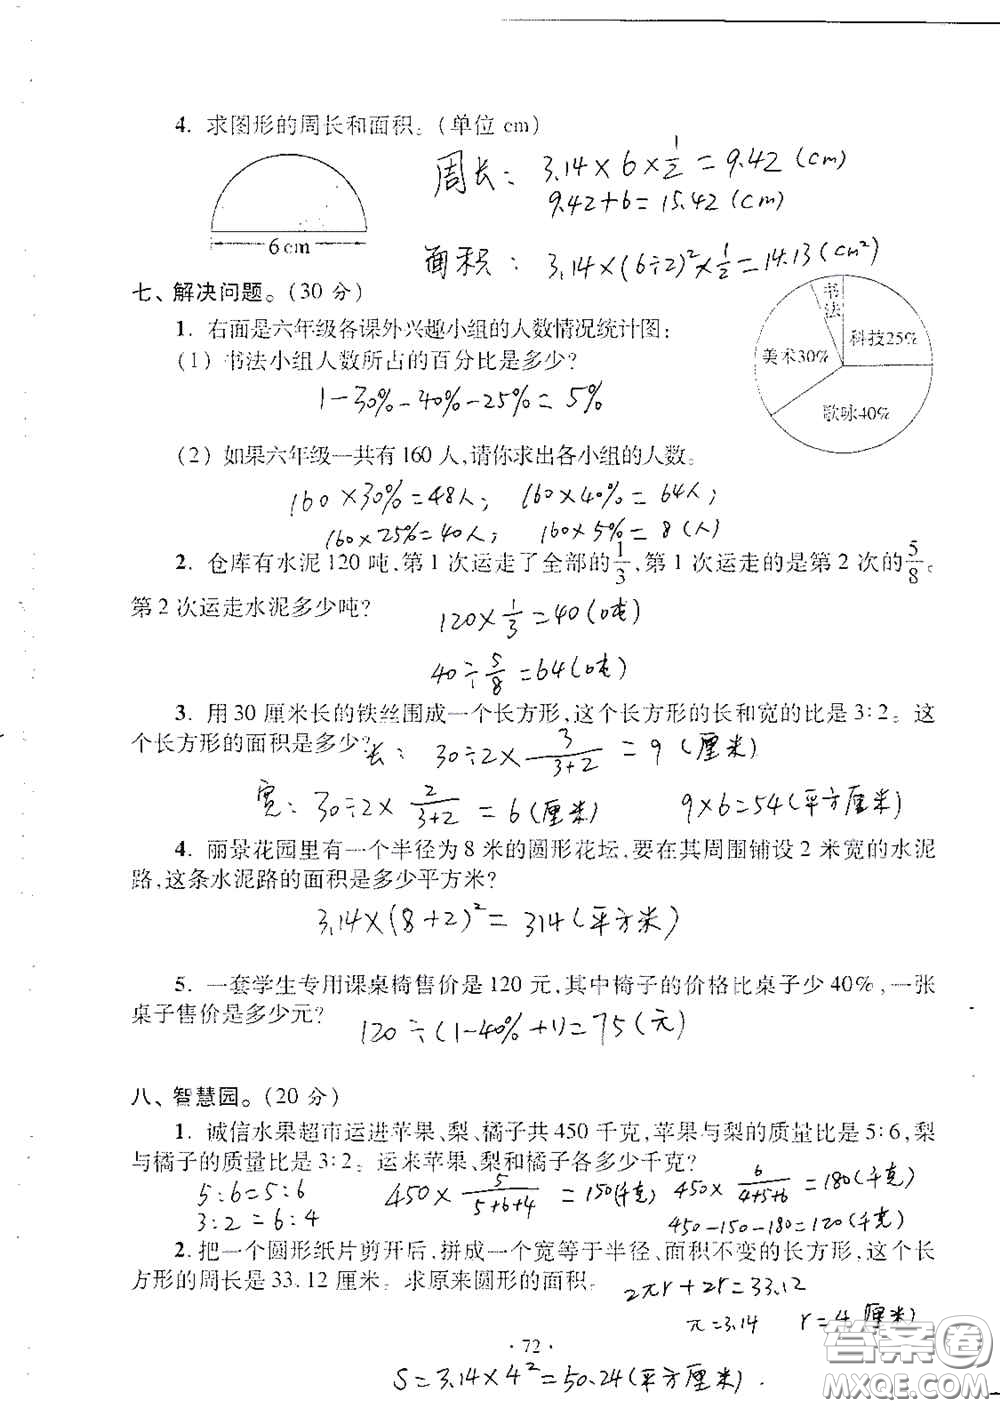 4. 求图形的周长和面积。(单位 cm)
6cm
周长： 3.14×6×1/2=9.42(cm)
9.42+6=15.42(cm)
面积： 3.14×(6÷2)²×1/2=14.13(cm²)
七、解决问题。(30 分)
1. 右面是六年级各课外兴趣小组的人数情况统计图：
(1) 书法小组人数所占的百分比是多少?
1-30%-40%-25%=5%
书法
科技25%
美术30%
歌咏40%
(2) 如果六年级一共有 160 人,请你求出各小组的人数。
160×30%=48人； 160×40%=64人；
160×25%=40人； 160×5%=8(人)
2. 仓库有水泥 120 吨,第 1 次运走了全部的1/3,第 1 次运走的是第 2 次的5/8。
第 2 次运走水泥多少吨?
120×1/3=40(吨)
40÷5/8=64(吨)
3. 用 30 厘米长的铁丝围成一个长方形,这个长方形的长和宽的比是 3∶2。这
个长方形的面积是多少?
长： 30÷2×3/(3+2)=9(厘米)
宽：30÷2×2/(3+2)=6(厘米) 9×6=54(平方厘米)
4. 丽景花园里有一个半径为 8 米的圆形花坛,要在其周围铺设 2 米宽的水泥
路,这条水泥路的面积是多少平方米?
3.14×(8+2)²=314(平方米)
5. 一套学生专用课桌椅售价是 120 元,其中椅子的价格比桌子少 40%,一张
桌子售价是多少元?
120÷(1-40%+1)=75(元)
八、智慧园。(20 分)
1. 诚信水果超市运进苹果、梨、橘子共 450 千克,苹果与梨的质量比是 5∶6,梨
与橘子的质量比是 3∶2。运来苹果、梨和橘子各多少千克?
5:6=5:6
3:2=6:4
450×5/(5+6+4)=150(千克) 450×6/(4+5+6)=180(千克)
450-150-180=120(千克)
2. 把一个圆形纸片剪开后,拼成一个宽等于半径、面积不变的长方形,这个长
方形的周长是 33.12 厘米。求原来圆形的面积。
2πr+2r=33.12
π=3.14 r=4厘米)
· 72 ·
S=3.14×4²=50.24(平方厘米).
答案圈
MXQE.COM